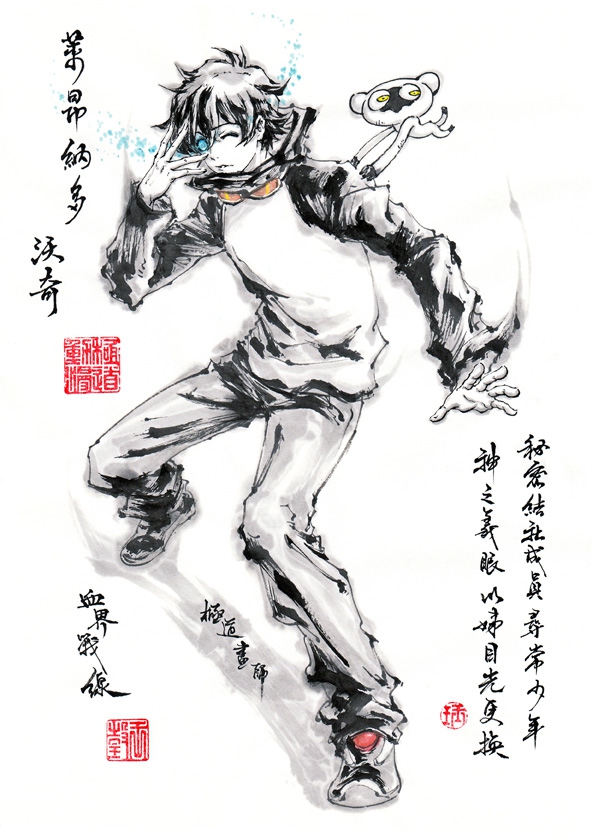 萊昂納多
沃奇
秘密結社成員尋常少年
神之義眼以妹目光更換
血界戰線
極道畫師